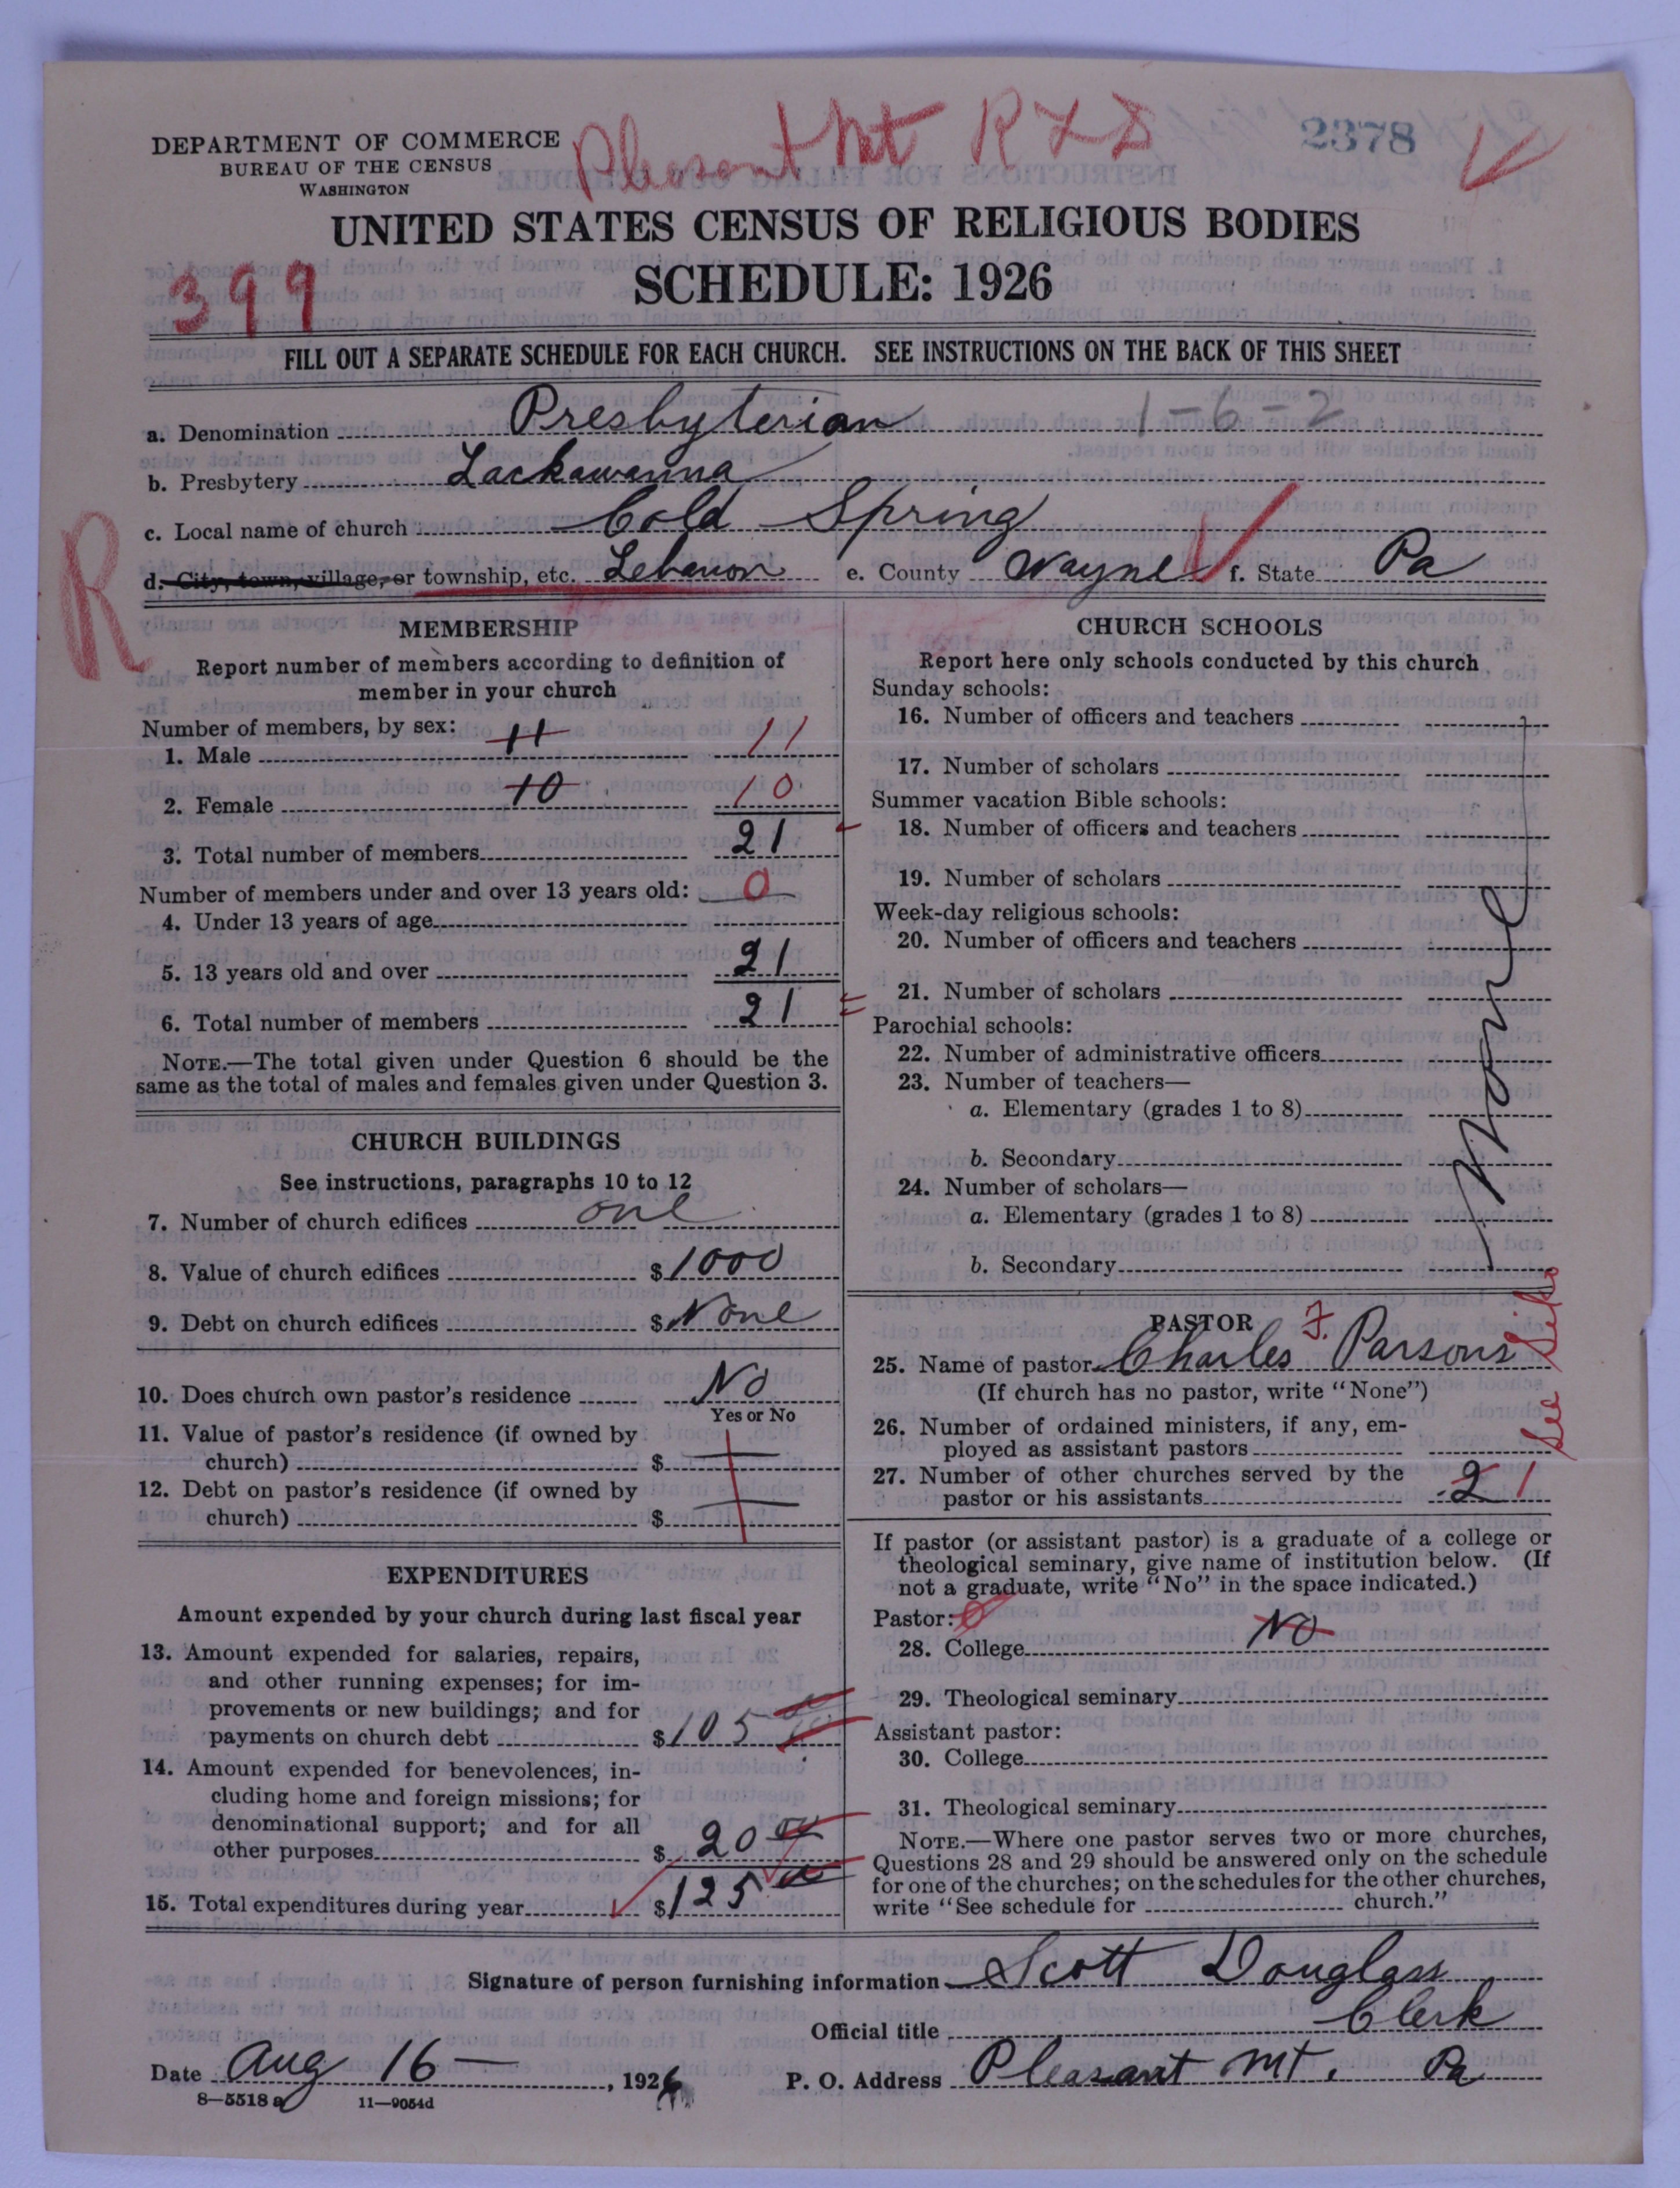 DEPARTMENT OF COMMERCE
BUREAU OF THE CENSUS
WASHINGTON
Pleasant Mt R
2378
UNITED STATES CENSUS OF RELIGIOUS BODIES
SCHEDULE: 1926
399
FILL OUT A SEPARATE SCHEDULE FOR EACH CHURCH. SEE INSTRUCTIONS ON THE BACK OF THIS SHEET
a. Denomination Presbyterian 1-6-2
b. Presbytery Lackawanna
c. Local name of church Cold Spring
R
d. City, town, village, or township, etc. Lebanon e. County Wayne f. State Pa
MEMBERSHIP
Report number of members according to definition of
member in your church
Number of members, by sex:
1. Male 11 11
2. Female 10 10
3. Total number of members 21
Number of members under and over 13 years old:
4. Under 13 years of age 0
5. 13 years old and over 21
6. Total number of members 21
NOTE.—The total given under Question 6 should be the
same as the total of males and females given under Question 3.
CHURCH BUILDINGS
See instructions, paragraphs 10 to 12
7. Number of church edifices one
8. Value of church edifices $1000
9. Debt on church edifices $ None
10. Does church own pastor's residence No
Yes or No
11. Value of pastor's residence (if owned by
church) $
12. Debt on pastor's residence (if owned by
church) $
EXPENDITURES
Amount expended by your church during last fiscal year
13. Amount expended for salaries, repairs,
and other running expenses; for im-
provements or new buildings; and for
payments on church debt $105 00
14. Amount expended for benevolences, in-
cluding home and foreign missions; for
denominational support; and for all
other purposes $ 20 00
15. Total expenditures during year $125 00
CHURCH SCHOOLS
Report here only schools conducted by this church
Sunday schools:
16. Number of officers and teachers
17. Number of scholars
Summer vacation Bible schools:
18. Number of officers and teachers
19. Number of scholars
Week-day religious schools:
20. Number of officers and teachers
21. Number of scholars
Parochial schools:
22. Number of administrative officers
23. Number of teachers—
a. Elementary (grades 1 to 8)
b. Secondary
24. Number of scholars—
a. Elementary (grades 1 to 8)
b. Secondary
None
PASTOR
25. Name of pastor Charles F. Parsons
(If church has no pastor, write "None")
26. Number of ordained ministers, if any, em-
ployed as assistant pastors
27. Number of other churches served by the
pastor or his assistants 2 1
See
If pastor (or assistant pastor) is a graduate of a college or
theological seminary, give name of institution below. (If
not a graduate, write "No" in the space indicated.)
Pastor: 0
28. College No
29. Theological seminary
Assistant pastor:
30. College
31. Theological seminary
NOTE.—Where one pastor serves two or more churches,
Questions 28 and 29 should be answered only on the schedule
for one of the churches; on the schedules for the other churches,
write "See schedule for church."
Signature of person furnishing information Scott Douglass
Official title Clerk
Date Aug 16 —, 1926 P. O. Address Pleasant Mt. Pa
8—5518 a 11—9054d